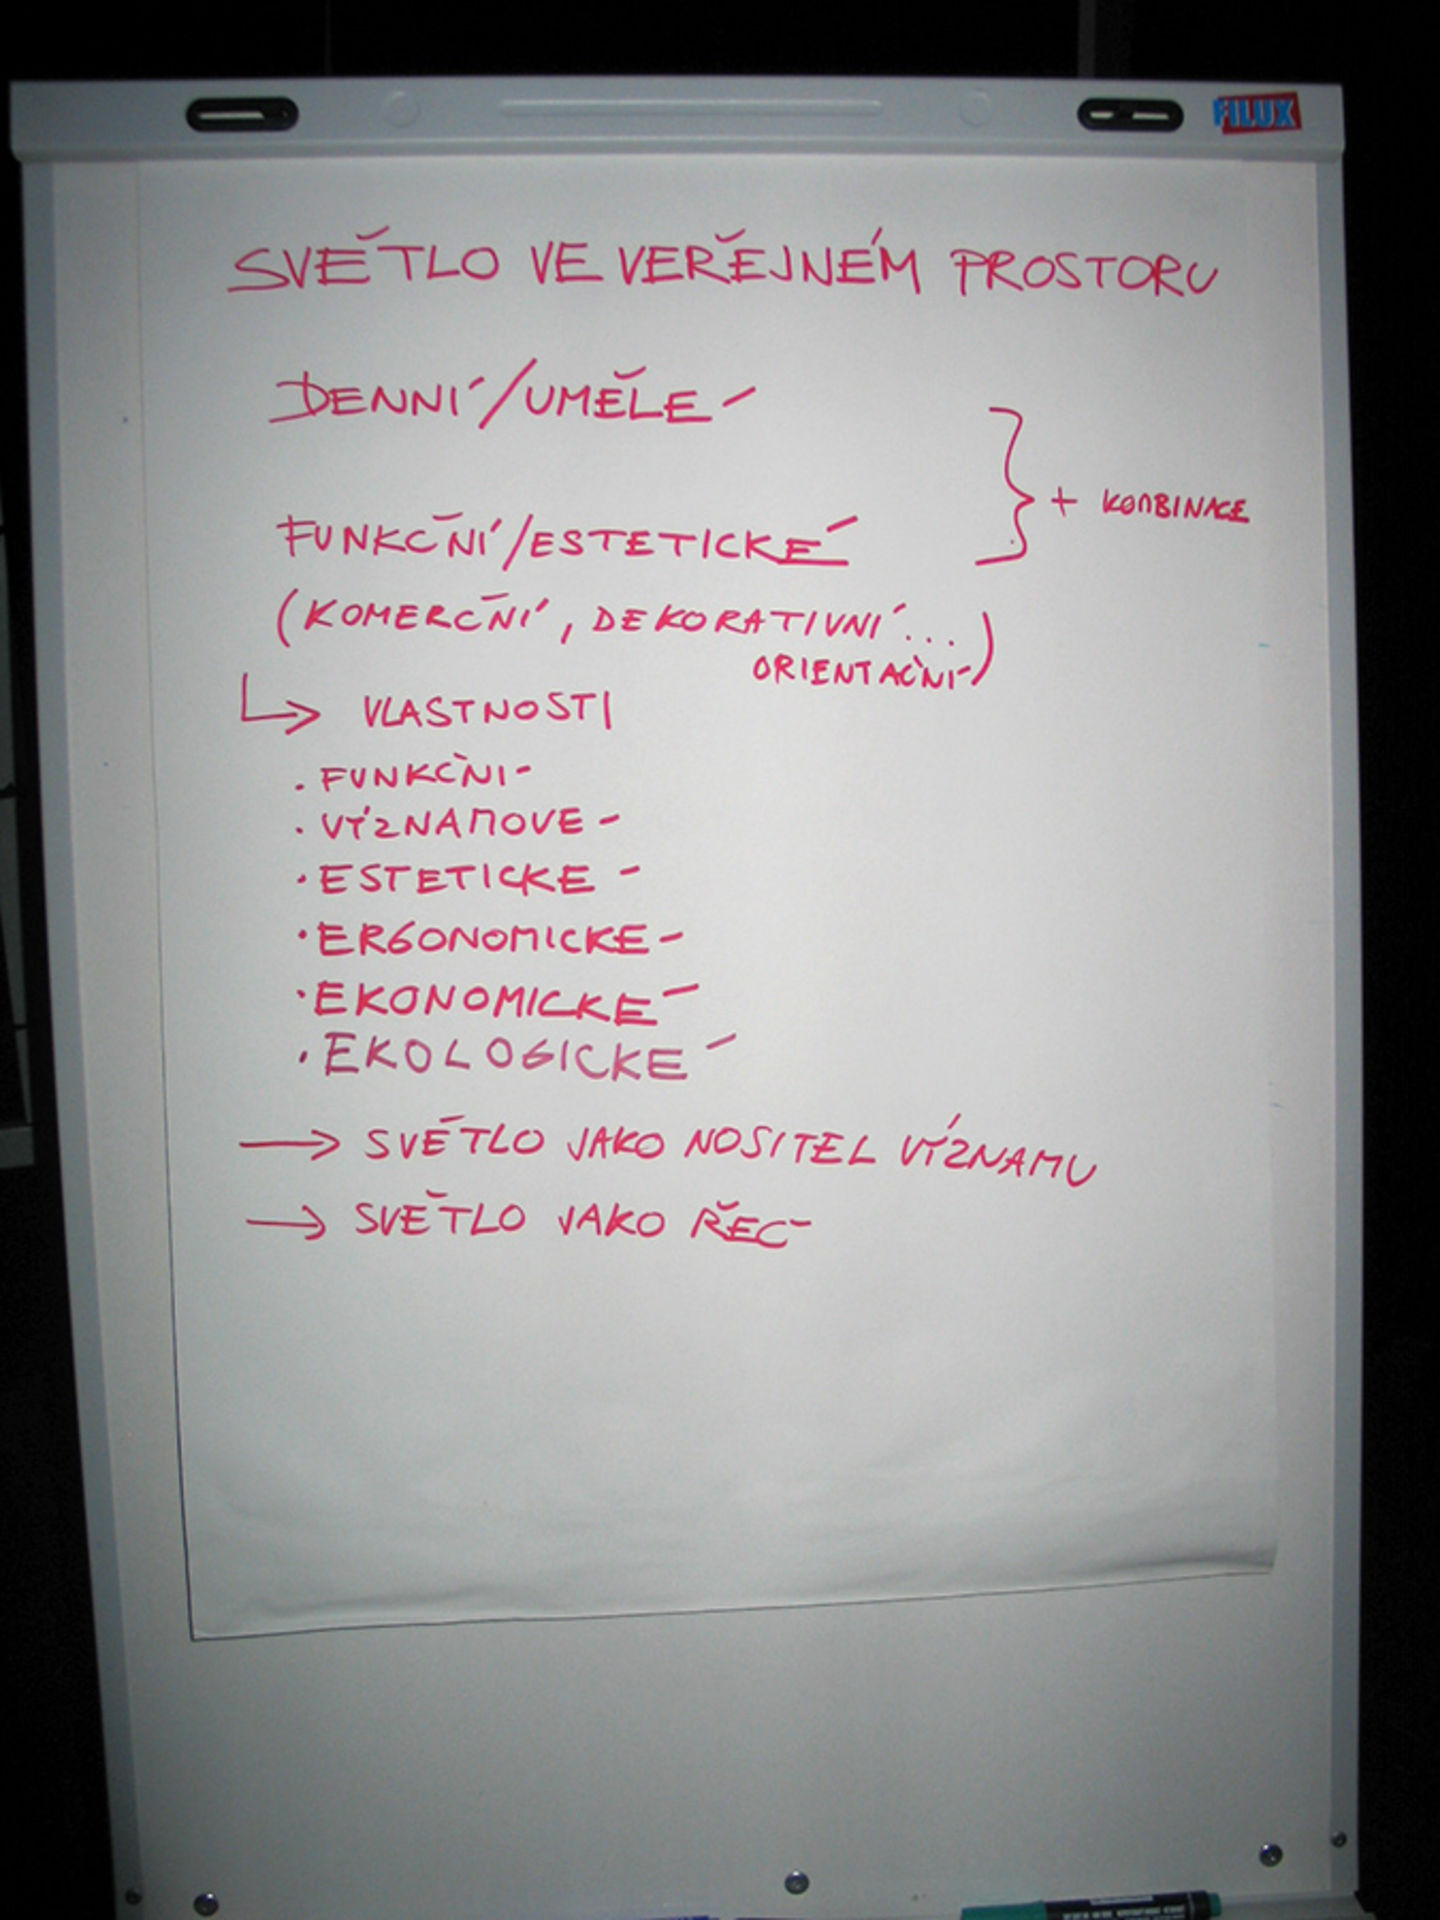 FILUX
SVĚTLO VE VEŘEJNÉM PROSTORU
DENNÍ/UMĚLÉ
+ KOMBINACE
FUNKČNÍ/ESTETICKÉ
(KOMERČNÍ, DEKORATIVNÍ...
ORIENTAČNÍ)
→ VLASTNOSTI
· FUNKČNÍ
· VÝZNAMOVÉ
· ESTETICKÉ
· ERGONOMICKÉ
· EKONOMICKÉ
· EKOLOGICKÉ
→ SVĚTLO JAKO NOSITEL VÝZNAMU
→ SVĚTLO JAKO ŘEČ